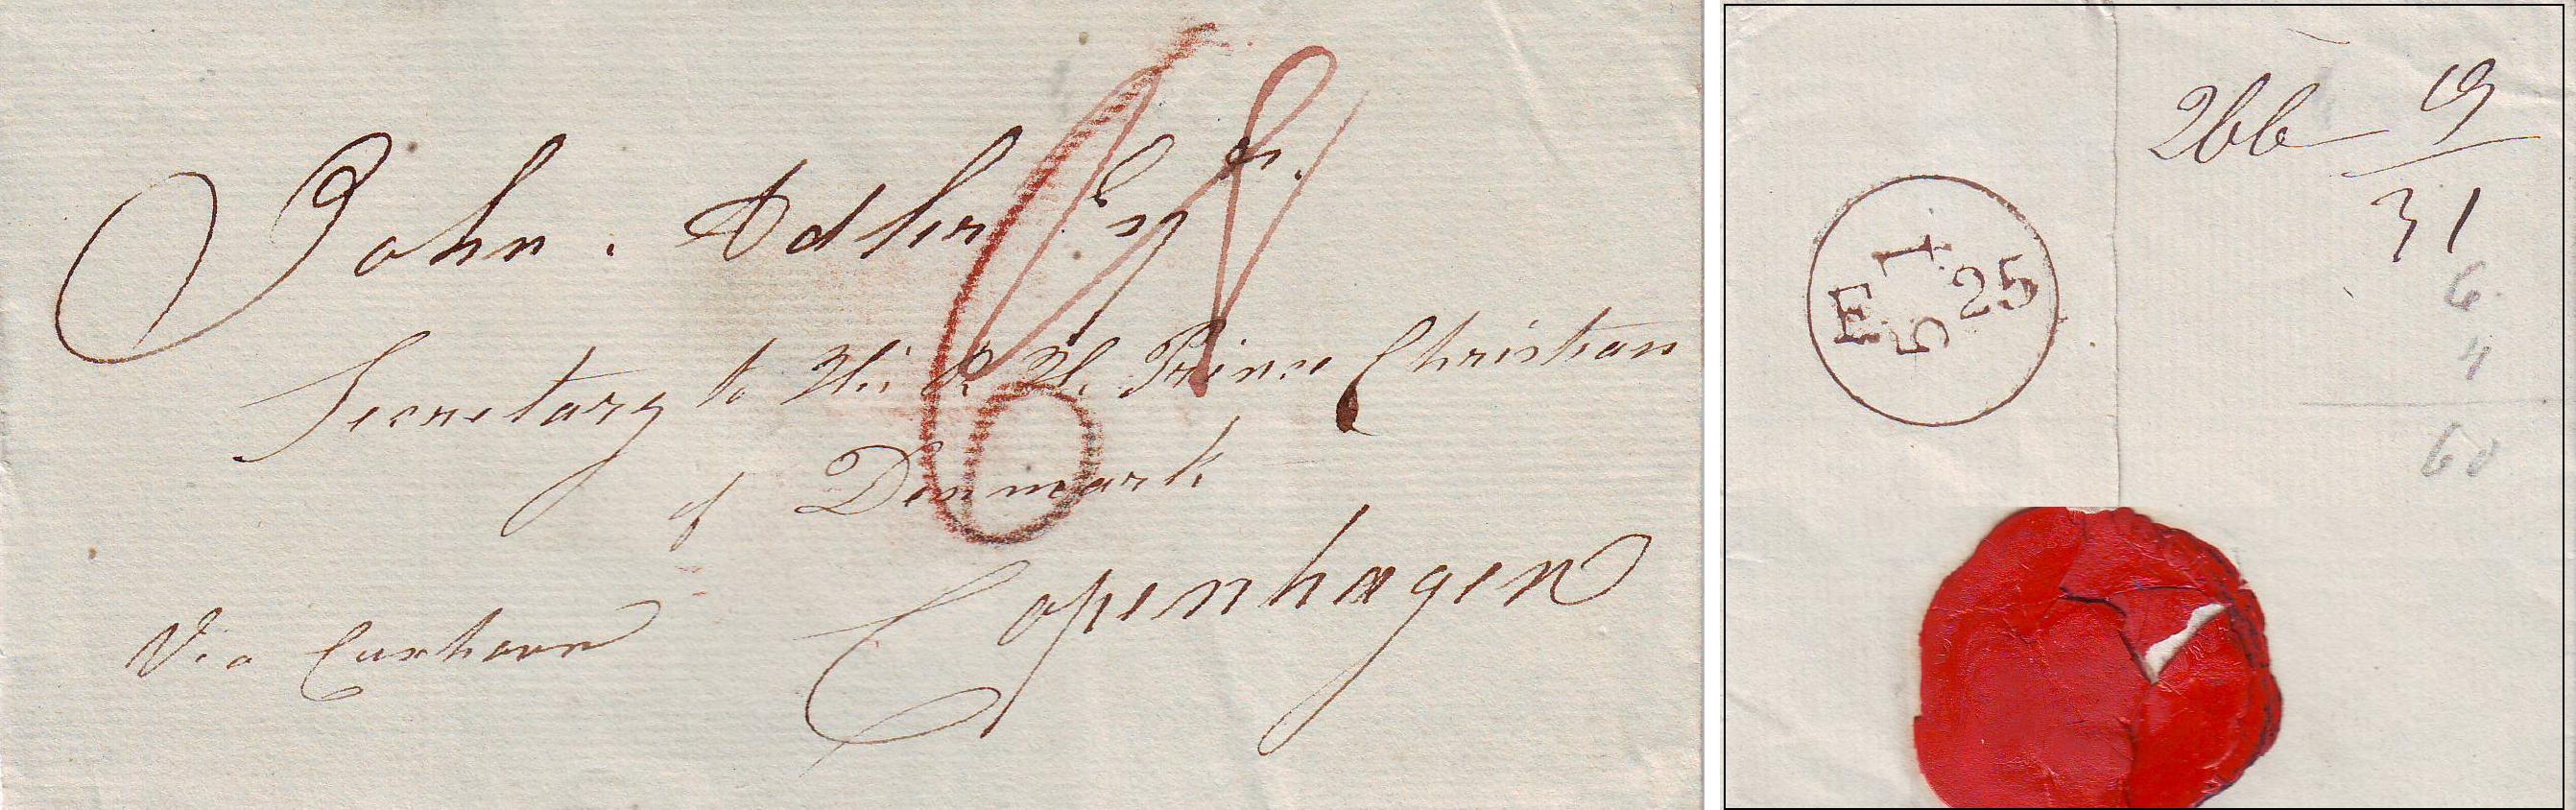 John. Adler Esqr.
Secretary to His R. H. Prince Christian
of Denmark
Copenhagen
Via Cuxhaven
6
266
19
31
E I 25
5
6
4
60